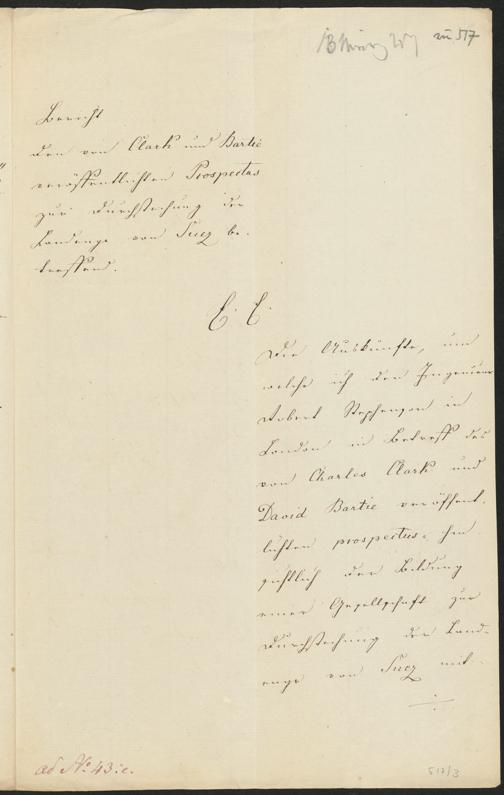 VII 517
Bericht
den von Clark und Bartie
veröffentlichten Prospectus
zur Durchstechung der
Landenge von Suez be-
treffend.
E. E.
Die Auskünfte, um
welche ich den Ingenieur
Robert Stephenson in
London in Betreff des
von Charles Clark und
David Bartie veröffent-
lichten prospectus, hin-
sichtlich der Bildung
einer Gesellschaft zur
Durchstechung der Land-
enge von Suez mit-
ad No. 43:e.
517/3